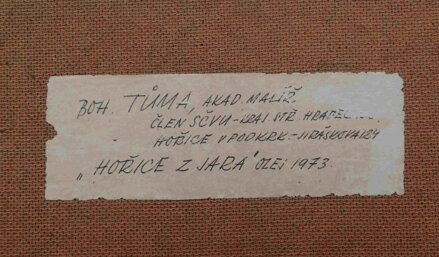 BOH. TŮMA, AKAD MALÍŘ.
ČLEN SČVU-KRAJ STŘ HRADEC
HOŘICE V PODKRK.-JIRÁSKOVA
„HOŘICE Z JARA" OLEJ 1973